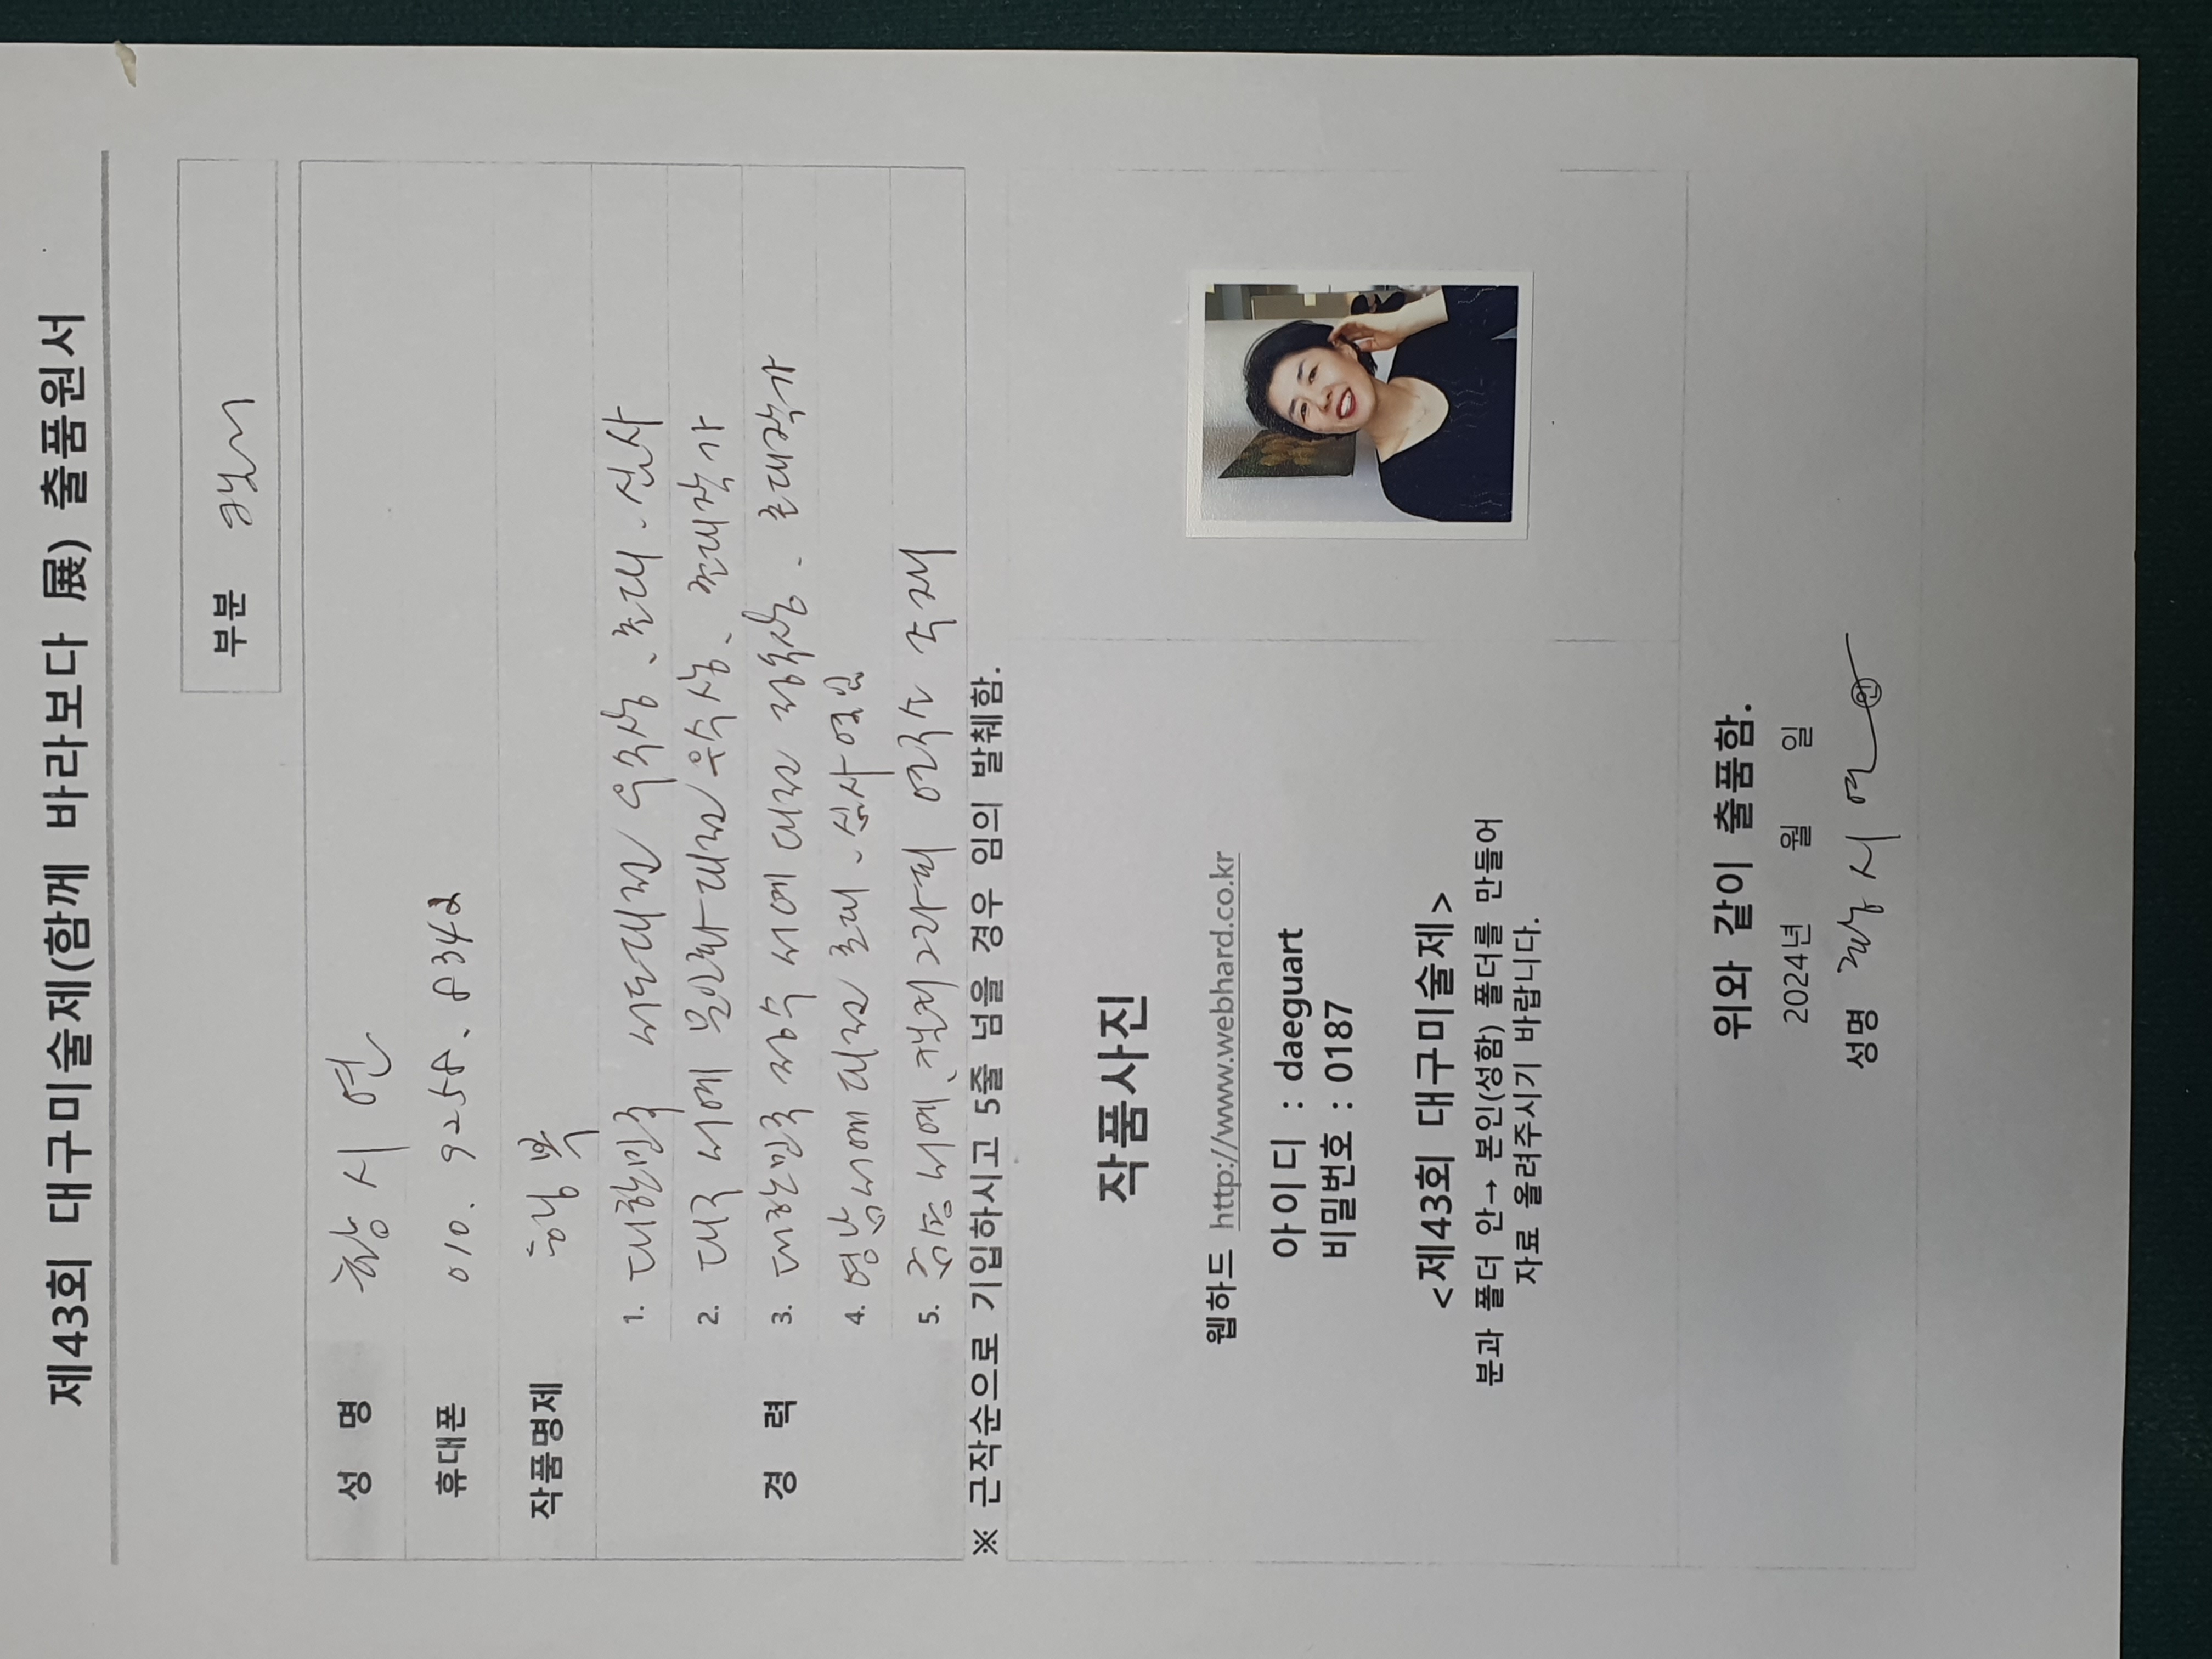 제43회 대구미술제(함께 바라보다 展) 출품원서
부분
성 명 시 연
휴대폰 010. 9258. 8342
작품명제 행복
경 력
1. 대한민국 서도대전 우수상, 초대. 심사
2. 대구 서예 문인화대전 우수상, 초대작가
3. 대한민국 서예대전 초대작가
4. 영남서예대전 초대. 심사역임
5. 서예, 캘리그라피 연구소
※ 근작순으로 기입하시고 5줄 넘을 경우 임의 발췌함.
작품사진
웹하드 http://www.webhard.co.kr
아이디 : daeguart
비밀번호 : 0187
<제43회 대구미술제>
분과 폴더 안→ 본인(성함) 폴더를 만들어
자료 올려주시기 바랍니다.
위와 같이 출품함.
2024년 월 일
성명 시 연 ㊞